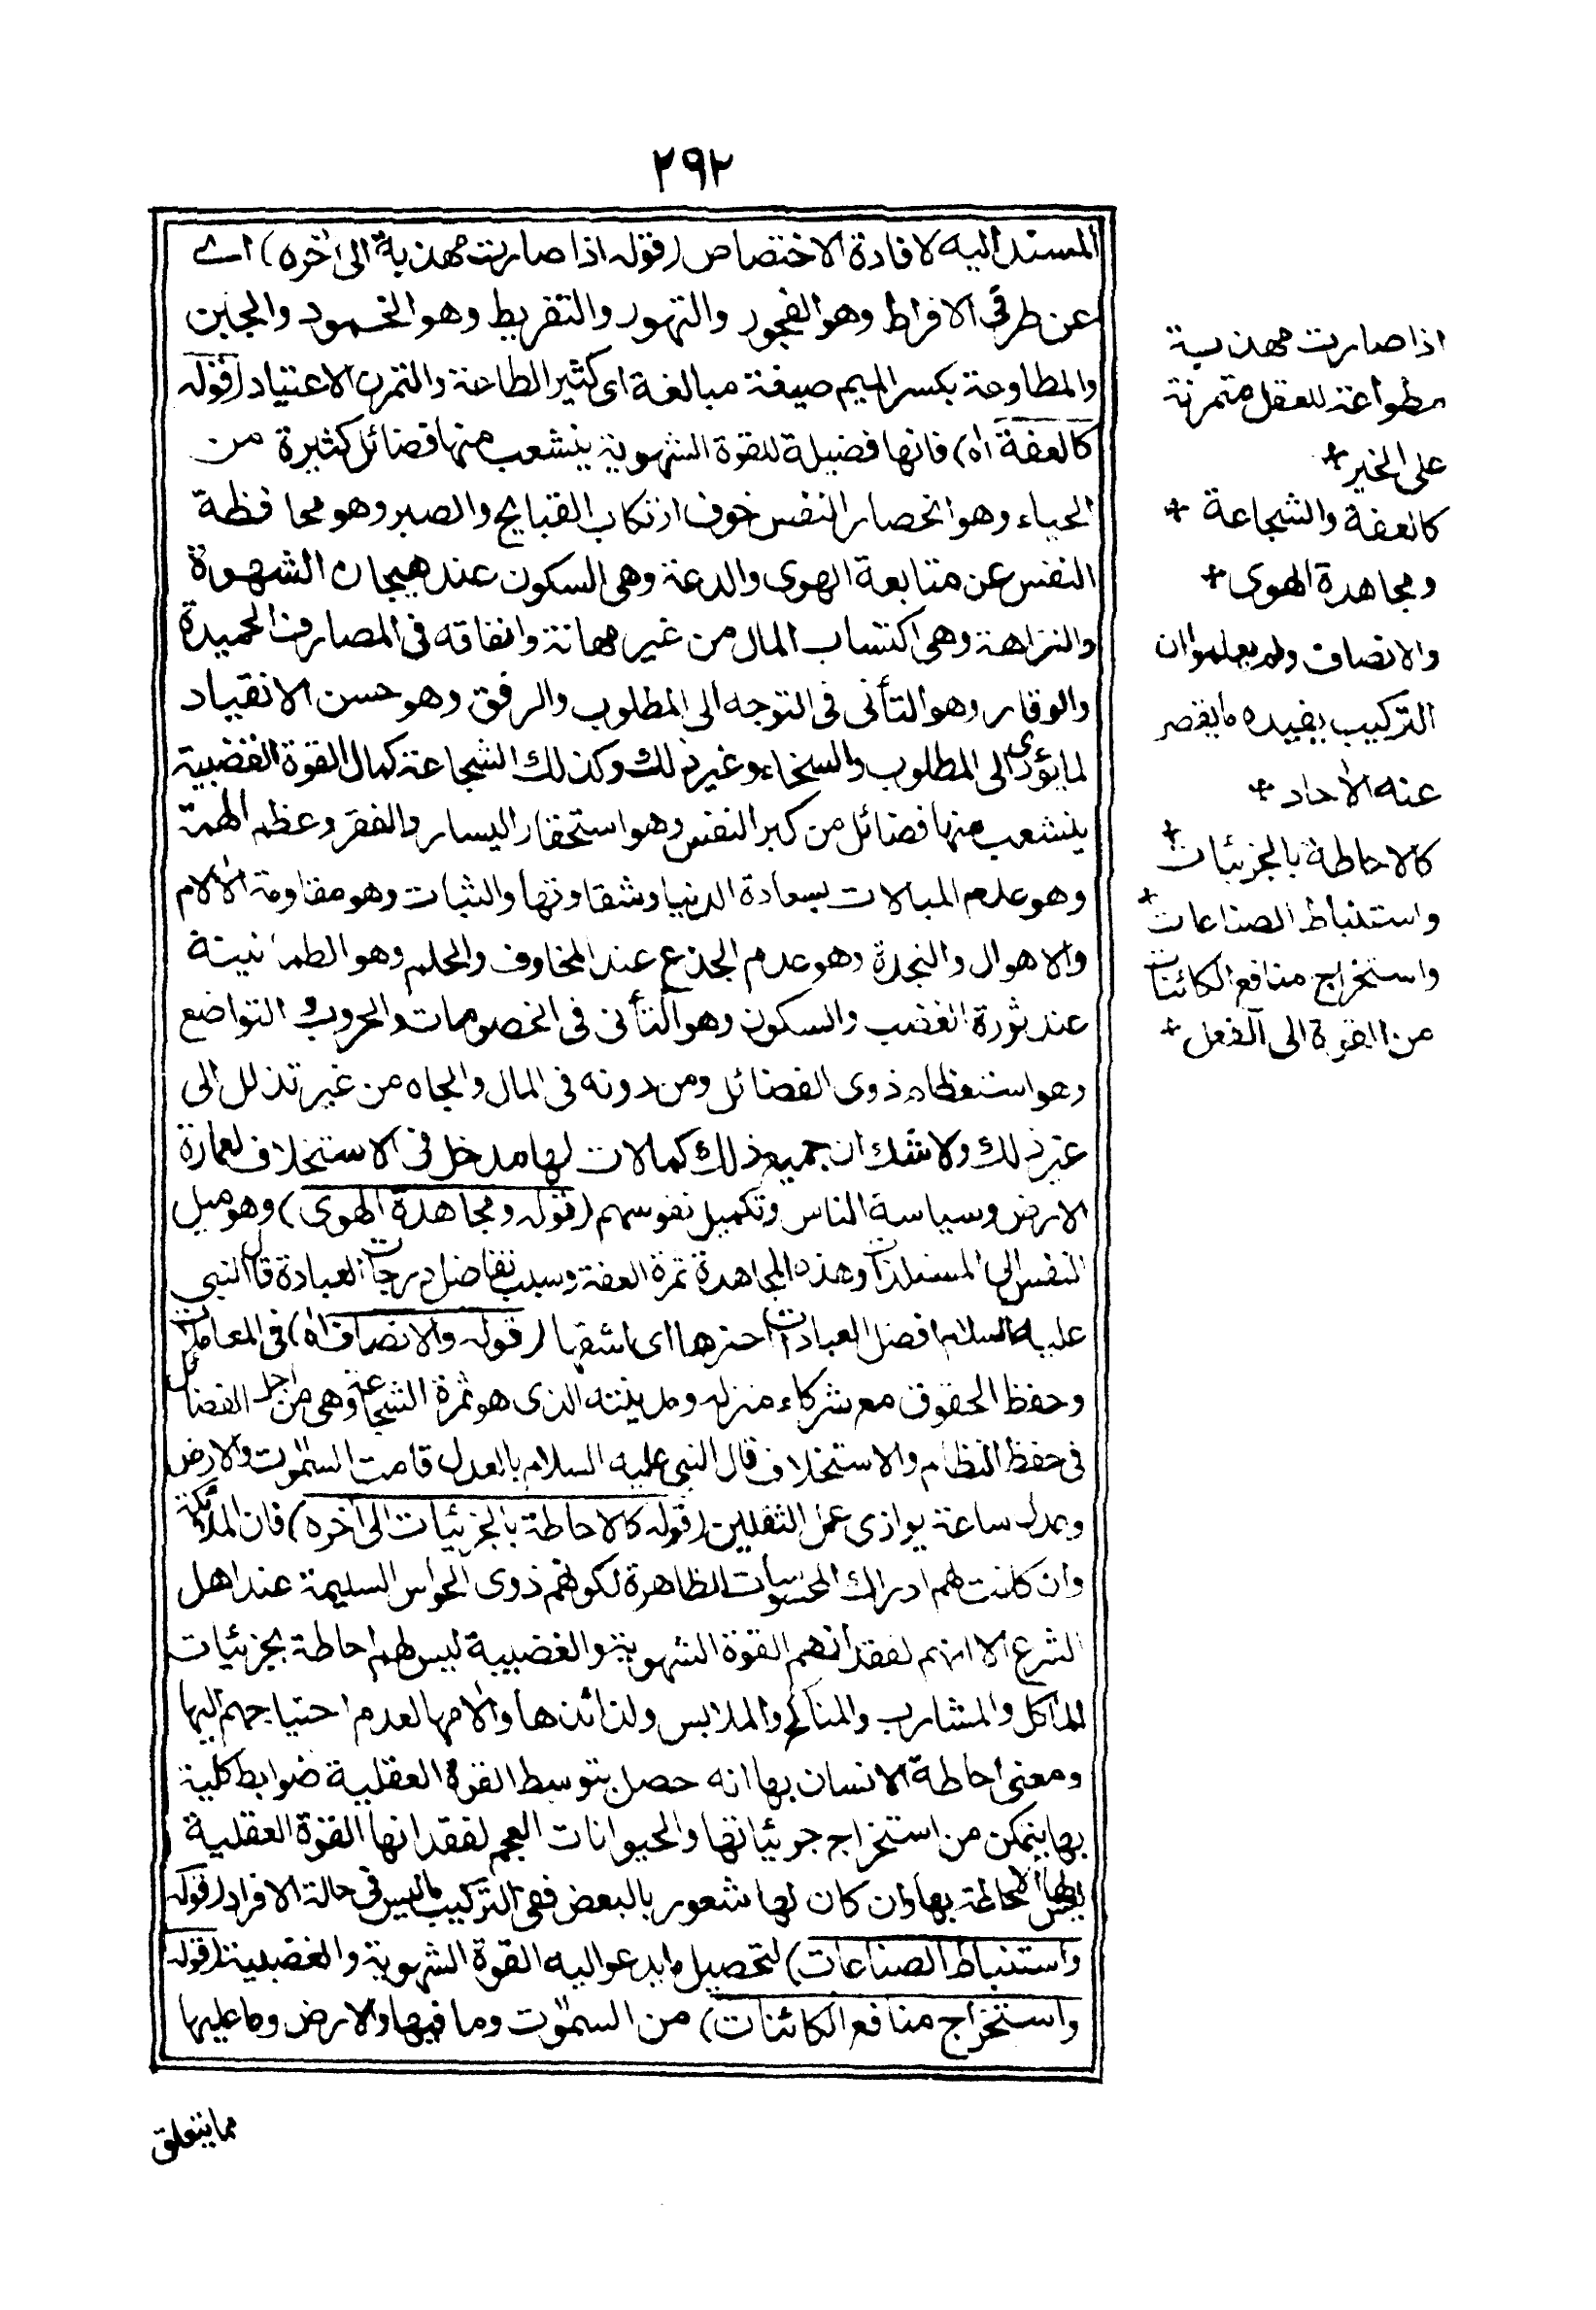 ٢٩٢
المسند اليه لافادة الاختصاص (قوله اذا صارت مهذبة الى آخره) اے
عن طرفى الافراط وهو الفجور والتهور والتفريط وهو الخمود والجبن
والمطاوعة بكسر الميم صيغة مبالغة اى كثير الطاعة والتمرن الاعتياد (قوله
كالعفة اه) فانها فضيلة للقوة الشهوية ينشعب منها فضائل كثيرة من
الحياء وهو انحصار النفس خوف ارتكاب القبايح والصبر وهو محافظة
النفس عن متابعة الهوى والدعة وهى السكون عند هيجان الشهوة
والنزاهة وهى اكتساب المال من غير مهانة وانفاقه فى المصارف الحميدة
والوقار وهو التأنى فى التوجه الى المطلوب والرفق وهو حسن الانقياد
لما يؤدى الى المطلوب والسخاء وغير ذلك وكذلك الشجاعة كمال القوة الغضبية
ينشعب منها فضائل من كبر النفس وهو استحقار اليسار والفقر وعظم الهمة
وهو عدم المبالات بسعادة الدنيا وشقاوتها والثبات وهو مقاومة الآلام
والاهوال والنجدة وهو عدم الجذع عند المخاوف والحلم وهو الطمانينة
عند ثورة الغضب والسكون وهو التأنى فى الخصومات والحروب و التواضع
وهو استعظام ذوى الفضائل ومن دونه فى المال والجاه من غير تذلل الى
غير ذلك ولا شك ان جميع ذلك كمالات لها مدخل فى الاستخلاف لعمارة
الارض وسياسة الناس وتكميل نفوسهم (قوله ومجاهدة الهوى) وهو ميل
النفس الى المستلذات وهذه المجاهدة ثمرة العفة وسبب تفاضل درجات العبادة قال النبى
عليه السلام افضل العبادات احمزها اى اشقها (قوله والانصاف اه) فى المعاملات
وحفظ الحقوق مع شركاء منزله ومدينته الذى هو ثمرة الشجاعة وهى من اجل الفضائل
فى حفظ النظام والاستخلاف قال النبى عليه السلام بالعدل قامت السموت والارض
وعدل ساعة يوازى عمل الثقلين (قوله كالاحاطة بالجزئيات الى آخره) فان الملائكة
وان كانت لهم ادراك المحسوسات الظاهرة لكونهم ذوى الحواس السليمة عند اهل
الشرع الا انهم لفقدانهم القوة الشهوية والغضبية ليس لهم احاطة بجزئيات
المآكل والمشارب والمناكح والملابس ولذائذها وآلامها لعدم احتياجهم اليها
ومعنى احاطة الانسان بها انه حصل بتوسط القوة العقلية ضوابط كلية
بها يتمكن من استخراج جزئياتها والحيوانات العجم لفقدانها القوة العقلية
ليس لها الاحاطة بها وان كان لها شعور بالبعض ففى التركيب ماليس فى حالة الافراد (قوله
واستنباط الصناعات) لتحصيل ما يدعو اليه القوة الشهوية والغضبية (قوله
واستخراج منافع الكائنات) من السموت وما فيها والارض وما عليها
مما يتعلق
اذا صارت مهذبة
مطواعة للعقل متمرنة
على الخير +
كالعفة والشجاعة +
ومجاهدة الهوى +
والانصاف ولم يعلموا ان
التركيب يفيده ما يقصر
عنه الآحاد +
كالاحاطة بالجزئيات +
واستنباط الصناعات +
واستخراج منافع الكائنات
من القوة الى الفعل +